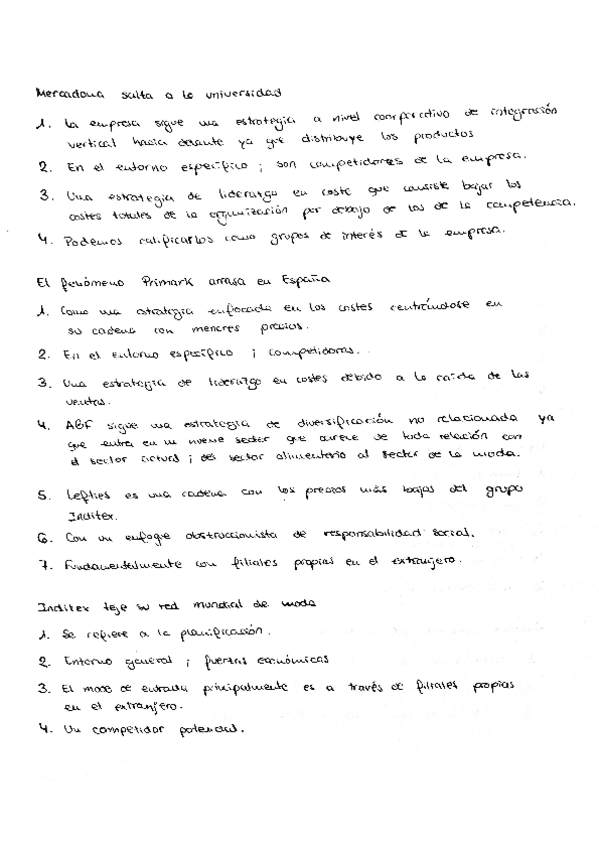 Mercadona salta a la universidad
1. La empresa sigue una estrategia a nivel corporativo de integración
vertical hacia delante ya que distribuye los productos
2. En el entorno específico ; son competidores de la empresa.
3. Una estrategia de liderazgo en coste que consiste bajar los
costes totales de la organización por debajo de los de la competencia.
4. Podemos calificarlos como grupos de interés de la empresa.
El fenómeno Primark arrasa en España
1. Como una estrategia enfocada en los costes centrándose en
su cadena con menores precios.
2. En el entorno específico ; competidores.
3. Una estrategia de liderazgo en costes debido a la caída de las
ventas.
4. ABF sigue una estrategia de diversificación no relacionada ya
que entra en un nuevo sector que carece de toda relación con
el sector actual ; del sector alimentario al sector de la moda.
5. Lefties es una cadena con los precios más bajos del grupo
Inditex.
6. Con un enfoque obstruccionista de responsabilidad social.
7. Fundamentalmente con filiales propias en el extranjero.
Inditex teje su red mundial de moda
1. Se refiere a la planificación.
2. Entorno general ; fuerzas económicas
3. El modo de entrada principalmente es a través de filiales propias
en el extranjero.
4. Un competidor potencial.